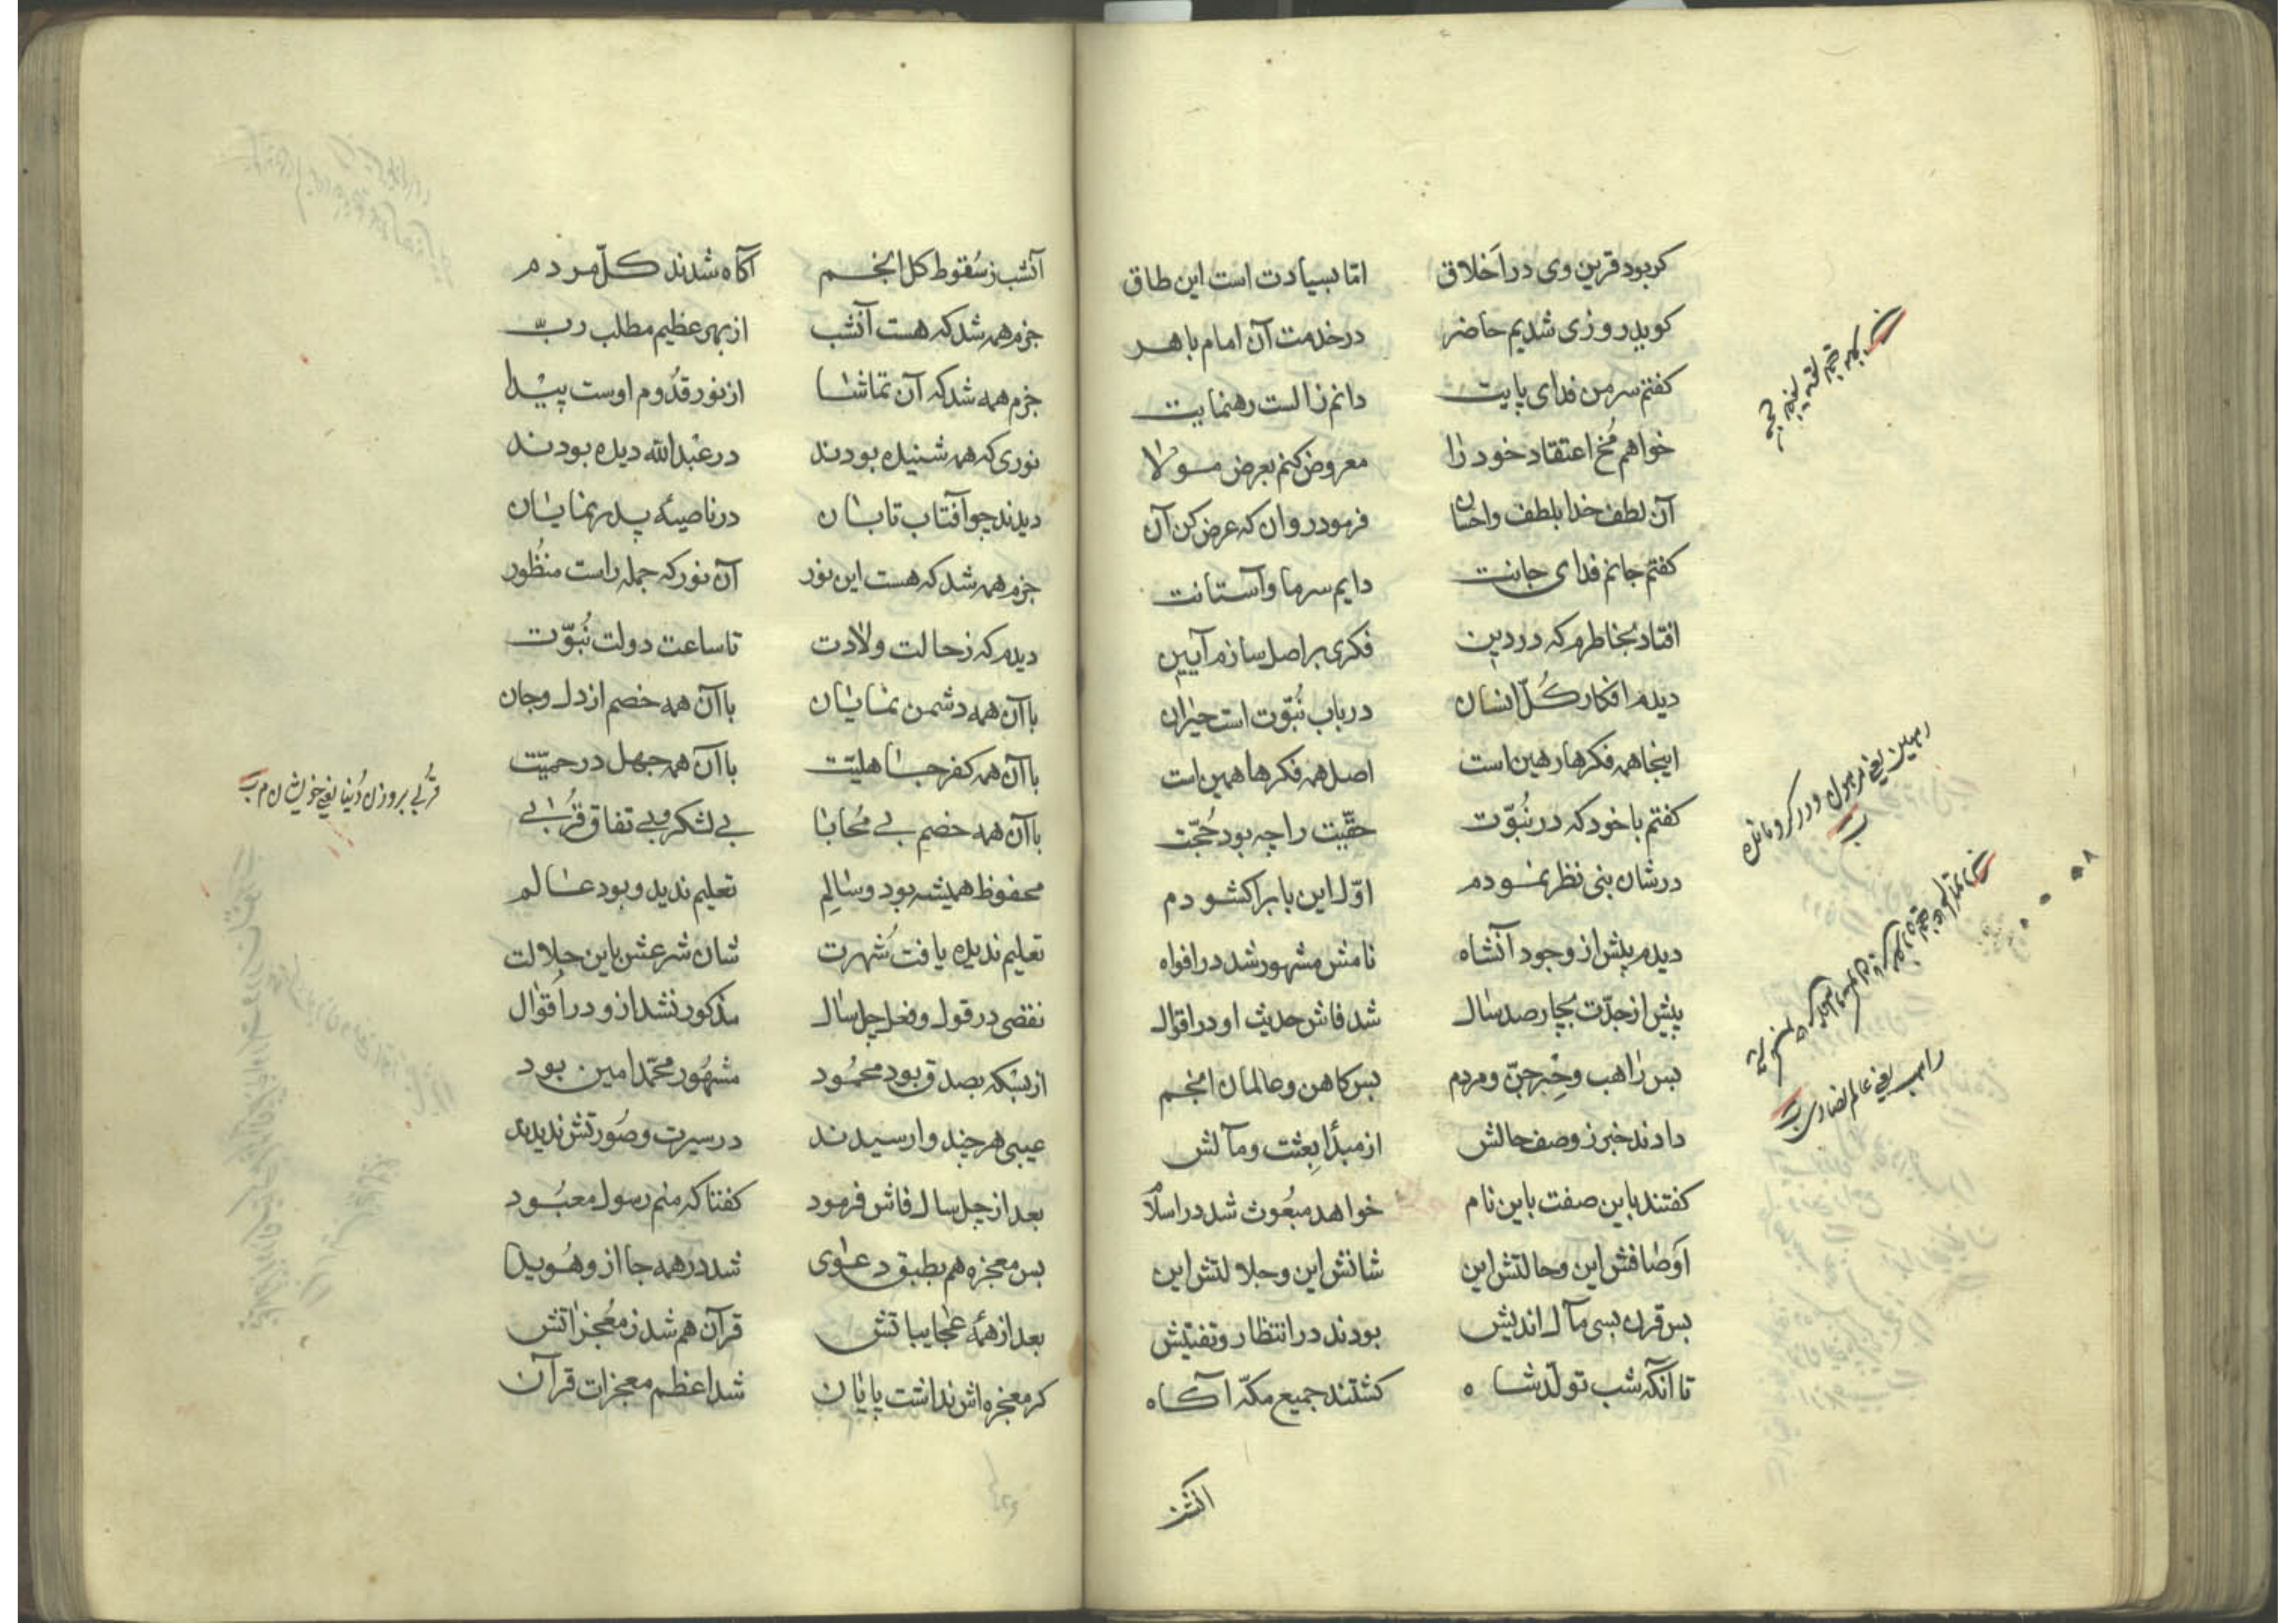 کر بود قرین وی در اَخلاق امّا بسیادت است این طاق
کوید روزی شدیم حاضر در خدمت آن امام باهر
کفتم سر من فدای پایت دانم ز الست رهنمایت
خواهم مُخ اعتقاد خود را معروض کنم بعرض مولا
آن لطف خدا بلطف واحسان فرمود روان که عرض کن آن
کفتم جانم فدای جانت دایم سر ما و آستانت
افتاد بخاطرم که در دین فکری بر اصل سازم آیین
دیدم افکار کُلّ انسان در باب نُبوّت است حیران
اینجا همه فکرها رهین است اصل همه فکرها همین است
کفتم با خود که در نُبوّت حقّیت را چه بود حُجّت
در شان نبی نظر نمودم اوّل این باب را کشودم
دیدم پیش از وجود آنشاه نامش مشهور شد در افواه
پیش از جدّت بچار صد سال شد فاش حدیث او در اقوال
بس راهب وحِبر جنّ و مردم بس کاهن و عالمان انجم
دادند خبر ز وصف حالش از مبدأ بِعثت و مآلش
کفتند باین صفت باین نام خواهد مبعُوث شد در اسلام
اَوصافش این و حالتش این شانش این و جلالتش این
بس قرن بسی مآل اندیش بودند در انتظار و تفتیش
تا آنکه شب تولّد شاه کشتند جمیع مکّه آکاه
رهین یعنی مرهون و در کرو مانده
راهب یعنی عالم نصاری
آنشب
آنشب ز سُقوط کل انجم آکاه شدند کلّ مردم
جزم همه شد که هست آنشب از بهر عظیم مطلب ربّ
جزم همه شد که آن تماشا از نور قدُوم اوست پیدا
نوری که همه شنیده بودند در عبدالله دیده بودند
دیدند چو آفتاب تابان در ناصیهٔ پدر نمایان
جزم همه شد که هست این نور آن نور که جمله راست منظُور
دیدم که ز حالت ولادت تا ساعت دولت نُبوّت
با آن همه دشمن نمایان با آن همه خصم از دل و جان
با آن همه کفر جاهلیّت با آن همه جهل در حمیّت
با آن همه خصم بی مُحابا بی لشکر و بی تفاق قُربی
محفوظ همیشه بود و سالِم تعلیم ندید و بود عالم
تعلیم ندیده یافت شُهرت شان شرعش باین جلالت
نقضی در قول و فعل چل سال مذکور نشد از و در اَقوال
از بسکه بصدق بود محمُود مشهُور محمّد امین بود
عیبی هر چند وارسیدند در سیرت و صُورتش ندیدند
بعد از چل سال فاش فرمود کفتا که منم رسول معبُود
بس معجزه هم بطبق دعوی شد در همه جا از و هُویدا
بعد از همهٔ عجایباتش قرآن هم شد ز مُعجزاتش
کر معجزه اش نداشت پایان شد اعظم معجزات قرآن
قُربی بر وزن دُنیا یعنی خویشان